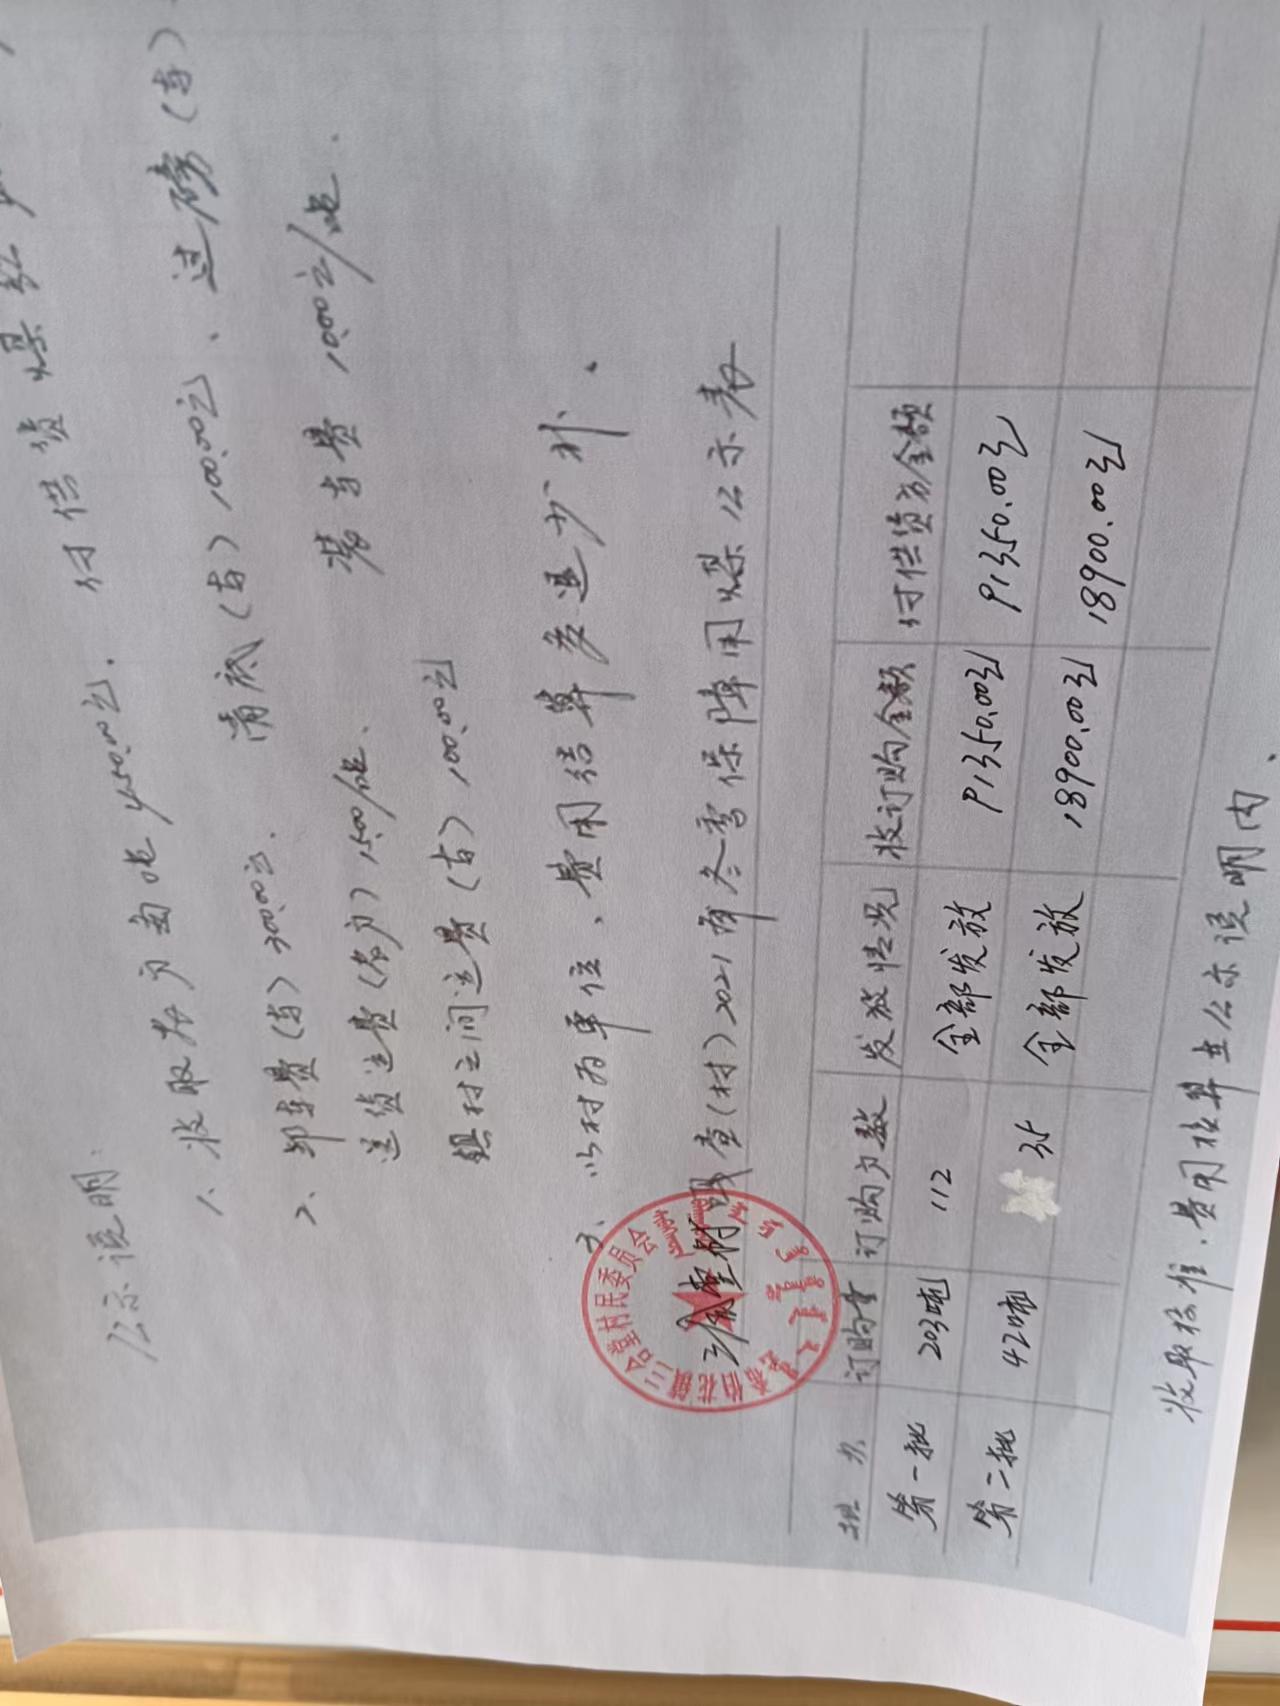 公示说明:
1、收取农户每吨450.00元. 付供货煤款
2、卸车费(车)200.00元. 清底(车)100.00元、过磅(车)
送货运费(各户)15.00/吨. 装车费 10.00元/吨.
镇村之间运费(车)100.00元
3、以村为单位、费用结算多退少补.
三合堂村 嘎查(村)2021年冬季保障用煤公示表
批次 订购量 订购户数 发放情况 收订购金额 付供货方金额
第一批 203吨 112 全部发放 91350.00元 91350.00元
第二批 42吨 35 全部发放 18900.00元 18900.00元
收取标准、费用核算在公示说明内.
希伯花镇三合堂村民委员会